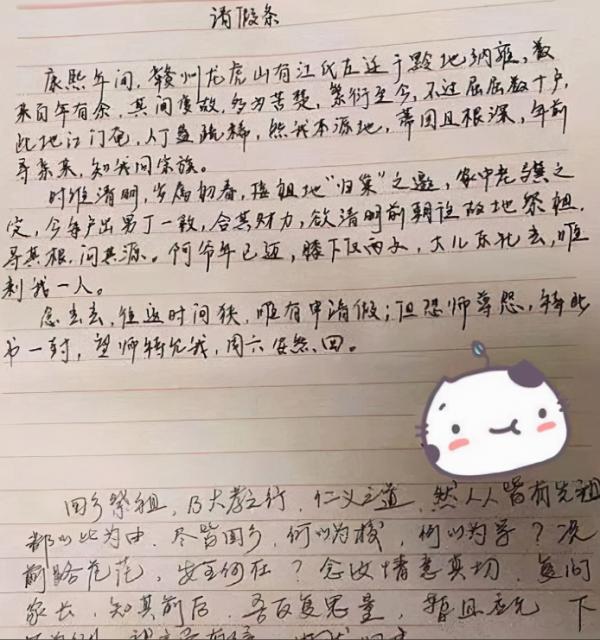 请假条
康熙年间,赣州龙虎山有江氏左迁于黔地纳雍,数
来百年有余,其间变故,多为苦楚,繁衍至今,不过屈屈数十户,
此地江门奄,人丁益疏稀,然我本源地,蒂固且根深,年前
寻亲来,知我同宗族。
时维清明,岁属初春,接祖地“归巢”之邀,家中老 之
定,今年户出男丁一枚,合其财力,欲清明前朝往故地祭祖,
寻其根,问其源。阿爷年已迈,膝下仅两女,大儿东北去,唯
剩我一人。
念去去,往返时间狭,唯有申请假;但恐师尊怨,特此
书一封,望师特允我,周六安然回。
回乡祭祖,乃大孝之行,仁义之道,然人人皆有先祖
都以此为由,尽皆回乡,何以为校,何以为学?况
前路茫茫,安全何在?念汝情意真切,复问
家长,知其前后,吾反复思量,暂且应允 下